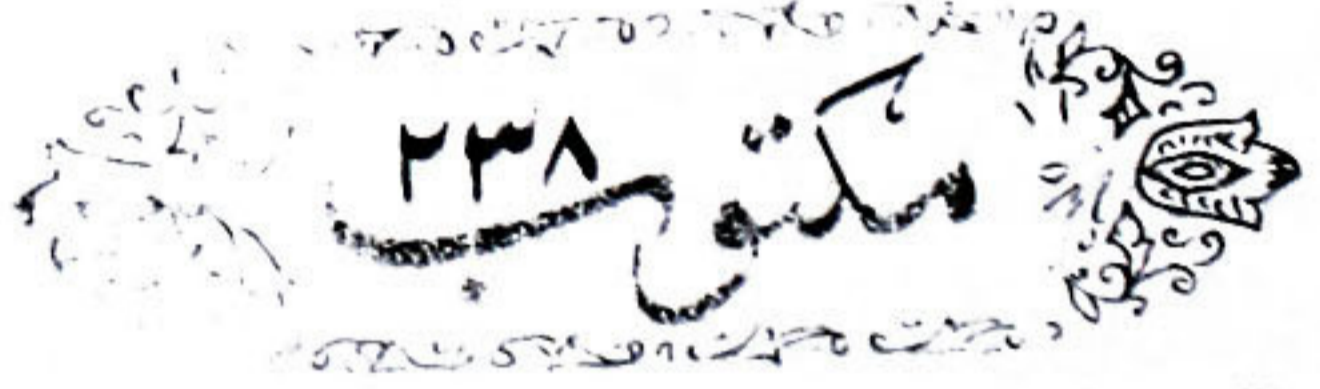 مکتوب ۲۳۸